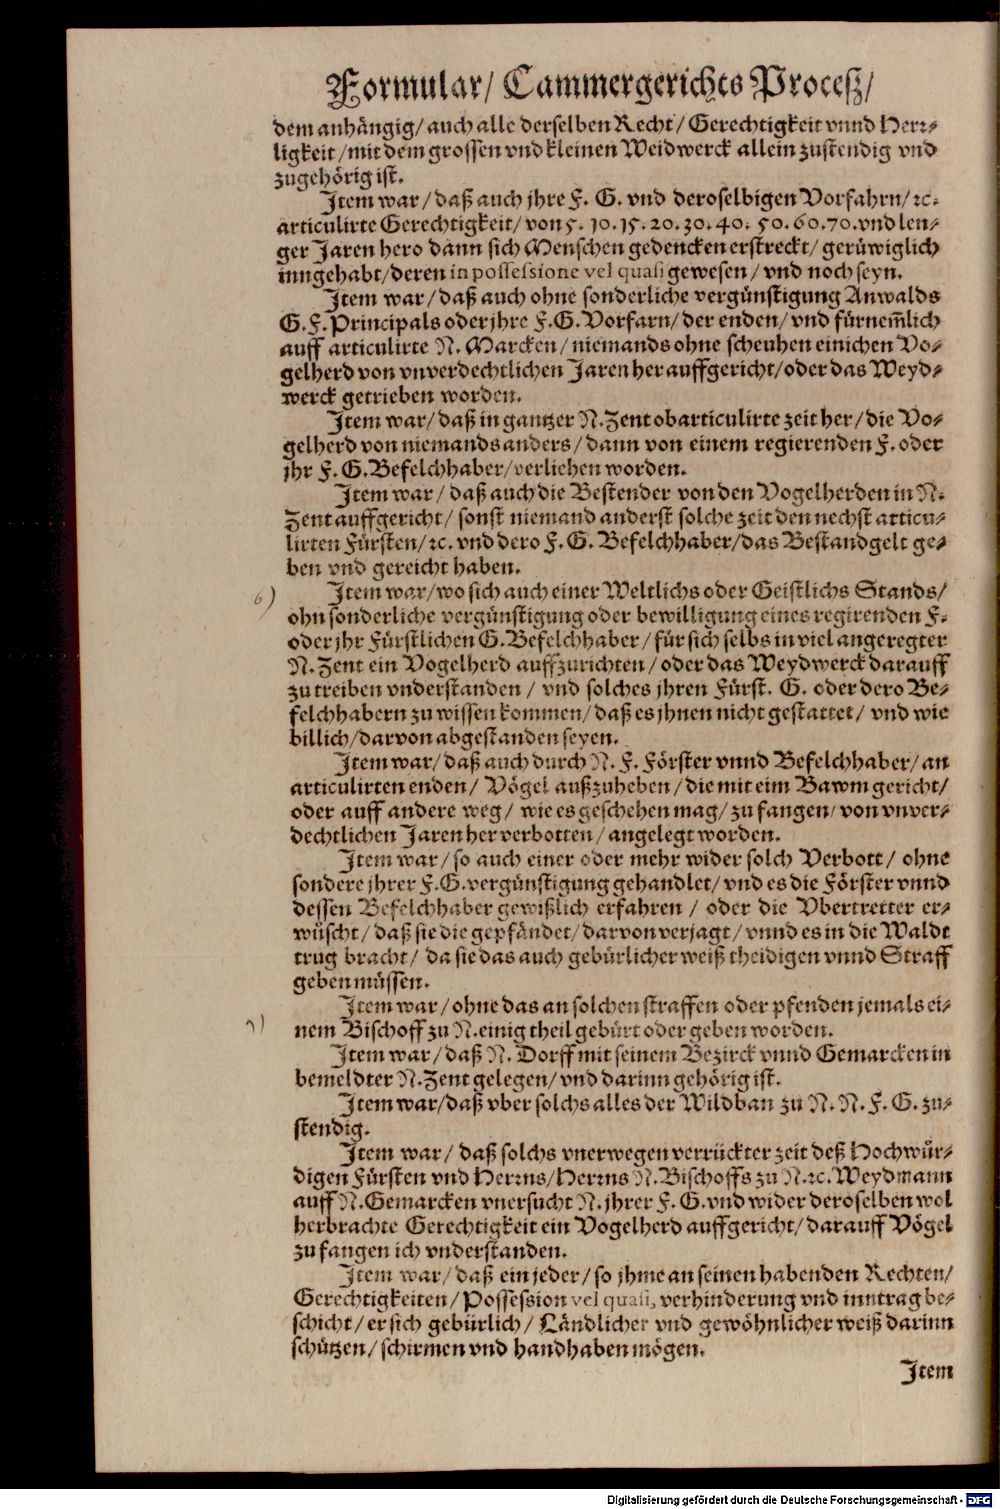 Formular/ Cammergerichts Proceß/
dem anhängig/ auch alle derselben Recht/ Gerechtigkeit vnnd Herr-
ligkeit/ mit dem grossen vnd kleinen Weidwerck allein zustendig vnd
zugehörig ist.
Item war/ daß auch jhre F. G. vnd deroselbigen Vorfahrn/ ꝛc.
articulirte Gerechtigkeit/ von 5. 10. 15. 20. 30. 40. 50. 60. 70. vnd len-
ger Jaren hero dann sich Menschen gedencken erstreckt/ gerüwiglich
inngehabt/ deren in possessione vel quasi gewesen/ vnd noch seyn.
Item war/ daß auch ohne sonderliche vergünstigung Anwalds
G. F. Principals oder jhre F. G. Vorfarn/ der enden/ vnd fürnem̃lich
auff articulirte N. Marcken/ niemands ohne scheuhen einichen Vo-
gelherd von vnverdechtlichen Jaren her auffgericht/ oder das Weyd-
werck getrieben worden.
Item war/ daß in gantzer N. Zent obarticulirte zeit her/ die Vo-
gelherd von niemands anders/ dann von einem regierenden F. oder
jhr F. G. Befelchhaber/ verliehen worden.
Item war/ daß auch die Bestender von den Vogelherden in N.
Zent auffgericht/ sonst niemand anderst solche zeit den nechst articu-
lirten Fürsten/ ꝛc. vnd dero F. G. Befelchhaber/ das Bestandgelt ge-
ben vnd gereicht haben.
6) Item war/ wo sich auch einer Weltlichs oder Geistlichs Stands/
ohn sonderliche vergünstigung oder bewilligung eines regirenden F.
oder jhr Fürstlichen G. Befelchhaber/ für sich selbs in viel angeregter
N. Zent ein Vogelherd auffzurichten/ oder das Weydwerck darauff
zu treiben vnderstanden/ vnd solches jhren Fürst. G. oder dero Be-
felchhabern zu wissen kommen/ daß es jhnen nicht gestattet/ vnd wie
billich/ darvon abgestanden seyen.
Item war/ daß auch durch N. F. Förster vnnd Befelchhaber/ an
articulirten enden/ Vögel außzuheben/ die mit eim Bawm gericht/
oder auff andere weg/ wie es geschehen mag/ zu fangen/ von vnver-
dechtlichen Jaren her verbotten/ angelegt worden.
Item war/ so auch einer oder mehr wider solch Verbott/ ohne
sondere jhrer F. G. vergünstigung gehandlet/ vnd es die Förster vnnd
dessen Befelchhaber gewißlich erfahren/ oder die Vbertretter er-
wüscht/ daß sie die gepfändet/ darvon verjagt/ vnnd es in die Waldt
trug bracht/ da sie das auch gebürlicher weiß theidigen vnnd Straff
geben müssen.
Item war/ ohne das an solchen straffen oder pfenden jemals ei-
7) nem Bischoff zu N. einig theil gebürt oder geben worden.
Item war/ daß N. Dorff mit seinem Bezirck vnnd Gemarcken in
bemeldter N. Zent gelegen/ vnd darinn gehörig ist.
Item war/ daß vber solchs alles der Wildban zu N. N. F. G. zu-
stendig.
Item war/ daß solchs vnerwegen verrückter zeit deß Hochwür-
digen Fürsten vnd Herrns/ Herrns N. Bischoffs zu N. ꝛc. Weydmann
auff N. Gemarcken vnersucht N. jhrer F. G. vnd wider deroselben wol
herbrachte Gerechtigkeit ein Vogelherd auffgericht/ darauff Vögel
zu fangen ich vnderstanden.
Item war/ daß ein jeder/ so jhme an seinen habenden Rechten/
Gerechtigkeiten/ Possession vel quasi, verhinderung vnd inntrag be-
schicht/ er sich gebürlich/ Ländlicher vnd gewöhnlicher weiß darinn
schützen/ schirmen vnd handhaben mögen.
Item
Digitalisierung gefördert durch die Deutsche Forschungsgemeinschaft - DFG